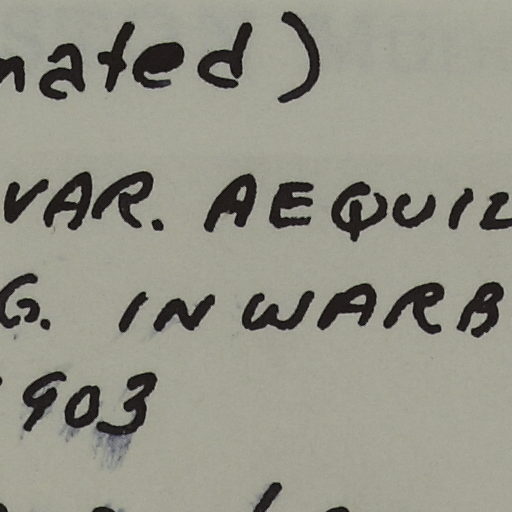 nated)
VAR. AEQUIL
G. IN WARB
903